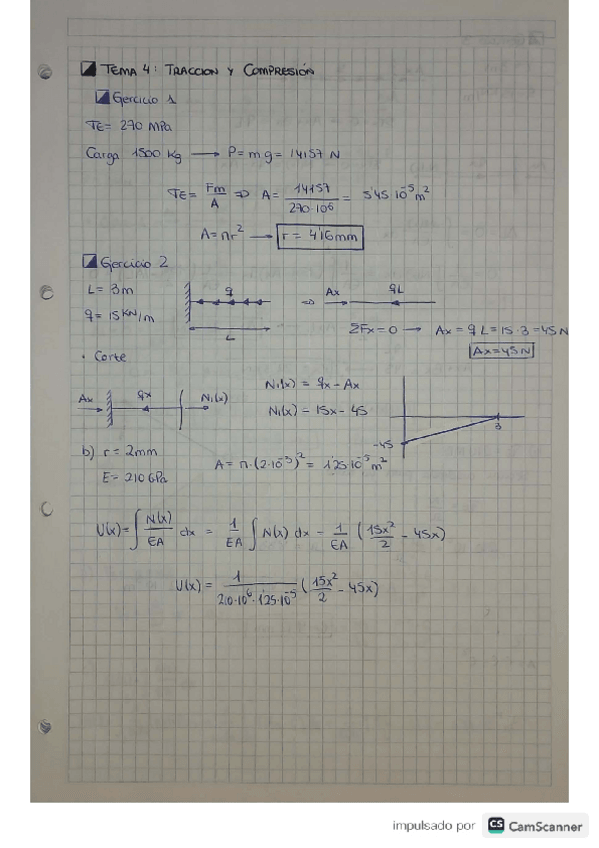 TEMA 4: TRACCION Y COMPRESIÓN
Ejercicio 1
TE = 270 MPa
Carga 1500 Kg → P = m g = 14157 N
TE = Fm/A ⇒ A = 14157/270·10⁶ = 5'45 10⁻⁵ m²
A = πr² → r = 4'16mm
Ejercicio 2
L = 3m
q = 15 KN/m
q
L
⇒
Ax
qL
ΣFx = 0 → Ax = q L = 15 · 3 = 45 N
Ax = 45 N
· Corte
Ax
qx
N₁(x)
N₁(x) = qx - Ax
N₁(x) = 15x - 45
3
-45
b) r = 2mm
E = 210 GPa
A = π·(2·10⁻³)² = 1'25·10⁻⁵ m²
U(x) = ∫ N(x)/EA dx = 1/EA ∫ N(x) dx = 1/EA (15x²/2 - 45x)
U(x) = 1/210·10⁶·1'25·10⁻⁵ (15x²/2 - 45x)
impulsado por CS CamScanner